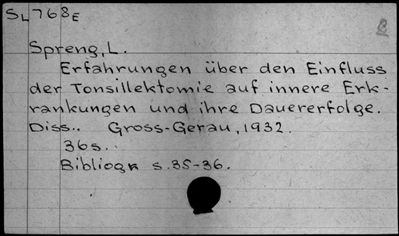 SL768E
Spreng, L.
Erfahrungen über den Einfluss
der Tonsillektomie auf innere Erk-
rankungen und ihre Dauererfolge.
Diss.. Gross-Gerau, 1932.
36s..
Bibliogr s.35-36.